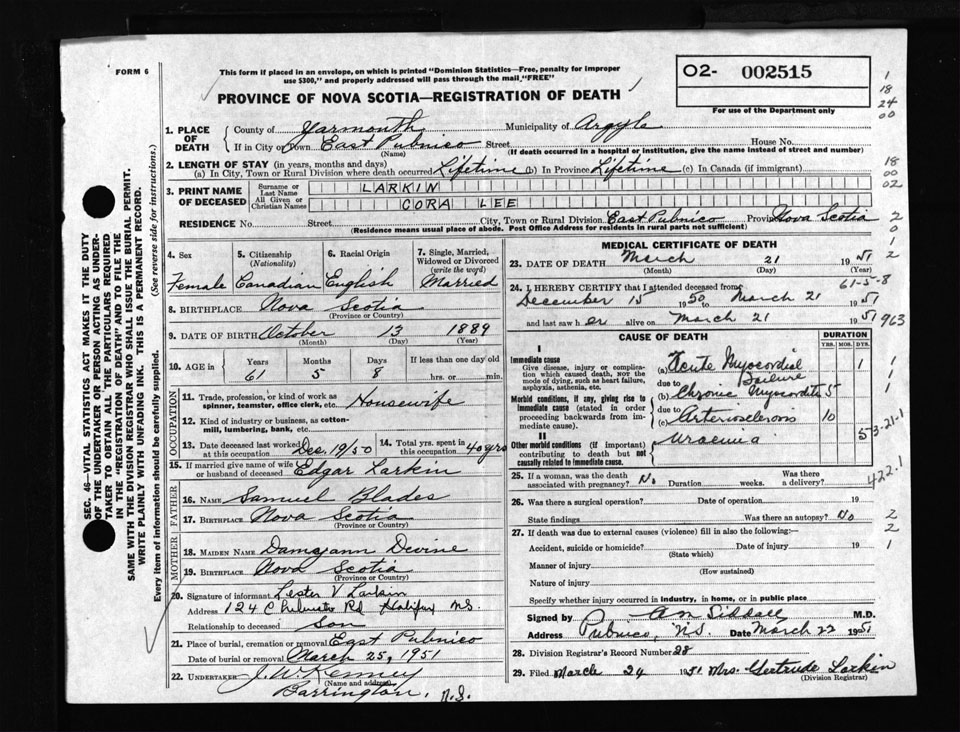 FORM 6
This form if placed in an envelope, on which is printed "Dominion Statistics—Free, penalty for improper
use $300," and properly addressed will pass through the mail "FREE"
PROVINCE OF NOVA SCOTIA—REGISTRATION OF DEATH
02- 002515
For use of the Department only
1
18
24
00
1. PLACE OF DEATH
County of Yarmouth Municipality of Argyle
If in City or Town East Pubnico Street House No.
(Name) (If death occurred in a hospital or institution, give the name instead of street and number)
2. LENGTH OF STAY (in years, months and days)
(a) In City, Town or Rural Division where death occurred Lifetime (b) In Province Lifetime (c) In Canada (if immigrant)
18
00
02
3. PRINT NAME OF DECEASED
Surname or Last Name LARKIN
All Given or Christian Names CORA LEE
RESIDENCE No. Street City, Town or Rural Division East Pubnico Province Nova Scotia
(Residence means usual place of abode. Post Office Address for residents in rural parts not sufficient)
2
0
1
2
SEC. 46—VITAL STATISTICS ACT MAKES IT THE DUTY
OF THE UNDERTAKER OR PERSON ACTING AS UNDER-
TAKER TO OBTAIN ALL THE PARTICULARS REQUIRED
IN THE "REGISTRATION OF DEATH" AND TO FILE THE
SAME WITH THE DIVISION REGISTRAR WHO SHALL ISSUE THE BURIAL PERMIT.
WRITE PLAINLY WITH UNFADING INK. THIS IS A PERMANENT RECORD.
Every item of information should be carefully supplied. (See reverse side for instructions.)
4. Sex 5. Citizenship (Nationality) 6. Racial Origin 7. Single, Married, Widowed or Divorced (write the word)
Female Canadian English Married
8. BIRTHPLACE Nova Scotia
(Province or Country)
9. DATE OF BIRTH October 13 1889
(Month) (Day) (Year)
10. AGE in Years Months Days If less than one day old
61 5 8 hrs. or min.
OCCUPATION
11. Trade, profession, or kind of work as
spinner, teamster, office clerk, etc. Housewife
12. Kind of industry or business, as cotton-
mill, lumbering, bank, etc.
13. Date deceased last worked at this occupation Dec. 19/50 14. Total yrs. spent in this occupation 40 yrs
15. If married give name of wife or husband of deceased Edgar Larkin
FATHER
16. NAME Samuel Blades
17. BIRTHPLACE Nova Scotia
(Province or Country)
MOTHER
18. MAIDEN NAME Devine
19. BIRTHPLACE Nova Scotia
(Province or Country)
20. Signature of informant Lester V Larkin
Address 124 Rd Halifax N.S.
Relationship to deceased Son
21. Place of burial, cremation or removal East Pubnico
Date of burial or removal March 25, 1951
22. UNDERTAKER J. W. Kenney
(Name and address)
Barrington, N.S.
MEDICAL CERTIFICATE OF DEATH
23. DATE OF DEATH March 21 1951
(Month) (Day) (Year)
61-5-8
24. I HEREBY CERTIFY that I attended deceased from
December 15 1950 to March 21 1951
and last saw her alive on March 21 1951
963
CAUSE OF DEATH DURATION
YRS. MOS. DYS.
I
Immediate cause
Give disease, injury or complica-
tion which caused death, NOT the
mode of dying, such as heart failure,
asphyxia, asthenia, etc.
(a) Acute Myocardial Failure 1
due to
Morbid conditions, if any, giving rise to
immediate cause (stated in order
proceeding backwards from im-
mediate cause).
(b) Chronic Myocarditis 5
due to
(c) Arteriosclerosis 10
II
Other morbid conditions (if important)
contributing to death but not
causally related to immediate cause.
Uraemia 5
1
1
1
3-21-1
422.1
25. If a woman, was the death associated with pregnancy? No Duration weeks. Was there a delivery?
26. Was there a surgical operation? Date of operation 19
State findings Was there an autopsy? No
2
27. If death was due to external causes (violence) fill in also the following:—
2
Accident, suicide or homicide? Date of injury 19
1
(State which)
Manner of injury
(How sustained)
Nature of injury
Specify whether injury occurred in industry, in home, or in public place
Signed by Siddall M.D.
Address Pubnico, N.S. Date March 22 1951
28. Division Registrar's Record Number 28
29. Filed March 24 1951 Mrs. Gertrude Larkin
(Division Registrar)